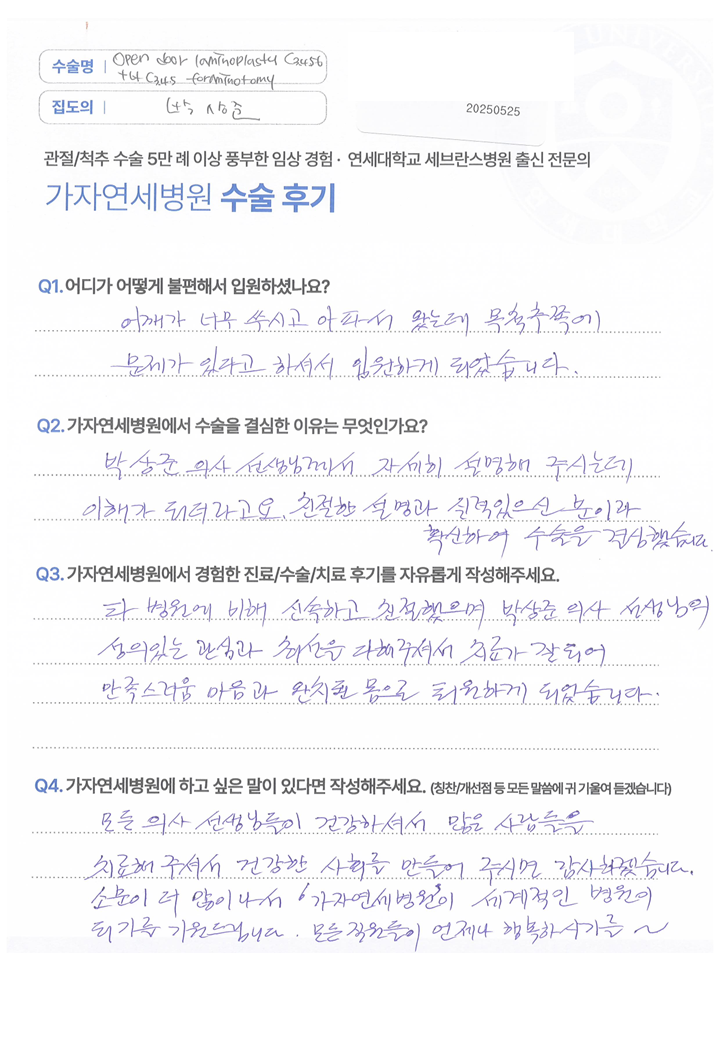 수술명 | Open door laminoplasty C3456
+ C345 foraminotomy
집도의 | 박상준
20250525
관절/척추 수술 5만 례 이상 풍부한 임상 경험 · 연세대학교 세브란스병원 출신 전문의
가자연세병원 수술 후기
Q1. 어디가 어떻게 불편해서 입원하셨나요?
어깨가 너무 쑤시고 아파서 왔는데 목척추쪽에
문제가 있다고 하셔서 입원하게 되았습니다.
Q2. 가자연세병원에서 수술을 결심한 이유는 무엇인가요?
박상준 의사 선생님께서 자세히 설명해 주시는데
이해가 되더라고요. 친절한 설명과 실적있으신 분이라
확신하여 수술을 결심했습니다.
Q3. 가자연세병원에서 경험한 진료/수술/치료 후기를 자유롭게 작성해주세요.
타 병원에 비해 신속하고 친절했으며 박상준 의사 선생님의
성의있는 관심과 최선을 다해주셔서 치료가 잘되어
만족스러운 마음과 완치된 몸으로 퇴원하게 되었습니다.
Q4. 가자연세병원에 하고 싶은 말이 있다면 작성해주세요. (칭찬/개선점 등 모든 말씀에 귀 기울여 듣겠습니다)
모든 의사 선생님들이 건강하셔서 많은 사람들을
치료해 주셔서 건강한 사회를 만들어 주시면 감사하겠습니다.
소문이 더 많이 나서 '가자연세병원'이 세계적인 병원이
되기를 기원드립니다. 모든 직원들이 언제나 행복하시기를 ~